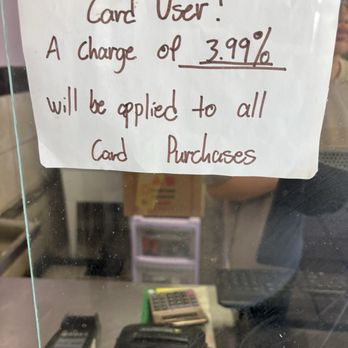 Card User!
A charge of 3.99%
will be applied to all
Card Purchases